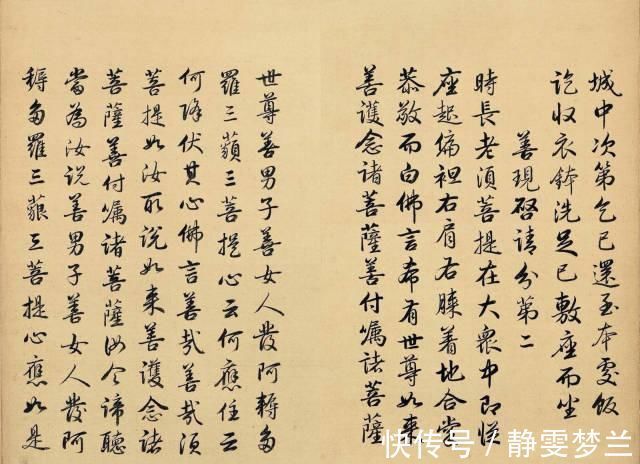 城中次第乞已還至本處飯
訖收衣鉢洗足已敷座而坐
善現啓請分第二
時長老須菩提在大衆中即從
座起偏袒右肩右膝着地合掌
恭敬而白佛言希有世尊如来
善護念諸菩薩善付嘱諸菩薩
世尊善男子善女人發阿耨多
羅三藐三菩提心云何應住云
何降伏其心佛言善哉善哉須
菩提如汝所說如来善護念諸
菩薩善付嘱諸菩薩汝今諦聽
當為汝說善男子善女人發阿
耨多羅三藐三菩提心應如是
快传号/静雯梦兰